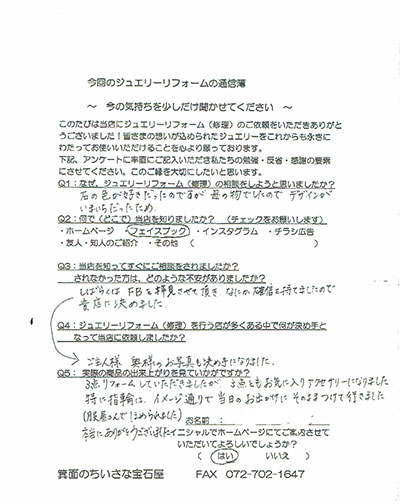 今回のジュエリーリフォームの通信簿
～ 今の気持ちを少しだけ聞かせてください ～
このたびは当店にジュエリーリフォーム(修理)のご依頼をいただきありがと
うございました!皆さまの想いが込められたジュエリーをこれからも永きに
わたってお使いいただけることを心より願っております。
下記、アンケートに率直にご記入いただき私たちの勉強・反省・感謝の要素
にさせてください。このご縁を大切にしたいと思います。
Q1:なぜ、ジュエリーリフォーム(修理)の相談をしようと思いましたか?
石の色が好きだったのですが 母の物でしたので デザインが
いまいちだったため
Q2:何で(どこで)当店を知りましたか? (チェックをお願いします)
・ホームページ ・フェイスブック ・インスタグラム ・チラシ広告
・友人・知人のご紹介 ・その他 ( )
Q3:当店を知ってすぐにご相談をされましたか?
されなかった方は、どのような不安がありましたか?
しばらくは FBを拝見させて頂き、なにか確信を持てましたので
貴店に決めました。
Q4:ジュエリーリフォーム(修理)を行う店が多くある中で何が決め手と
なって当店に依頼しましたか?
ご主人様 奥様のお写真も決め手になりました。
Q5:実際の商品の出来上がりを見ていかがですか?
3点リフォームしていただきましたが、3点ともお気に入りアクセサリーになりました
特に指輪は、イメージ通りで 当日のお出かけに そのままつけて行きました
(服屋さんで ほめられました)
お名前:
本当にありがとうございました
イニシャルでホームページにてご案内させて
いただいてよろしいでしょうか?
( はい いいえ )
箕面のちいさな宝石屋 FAX 072-702-1647